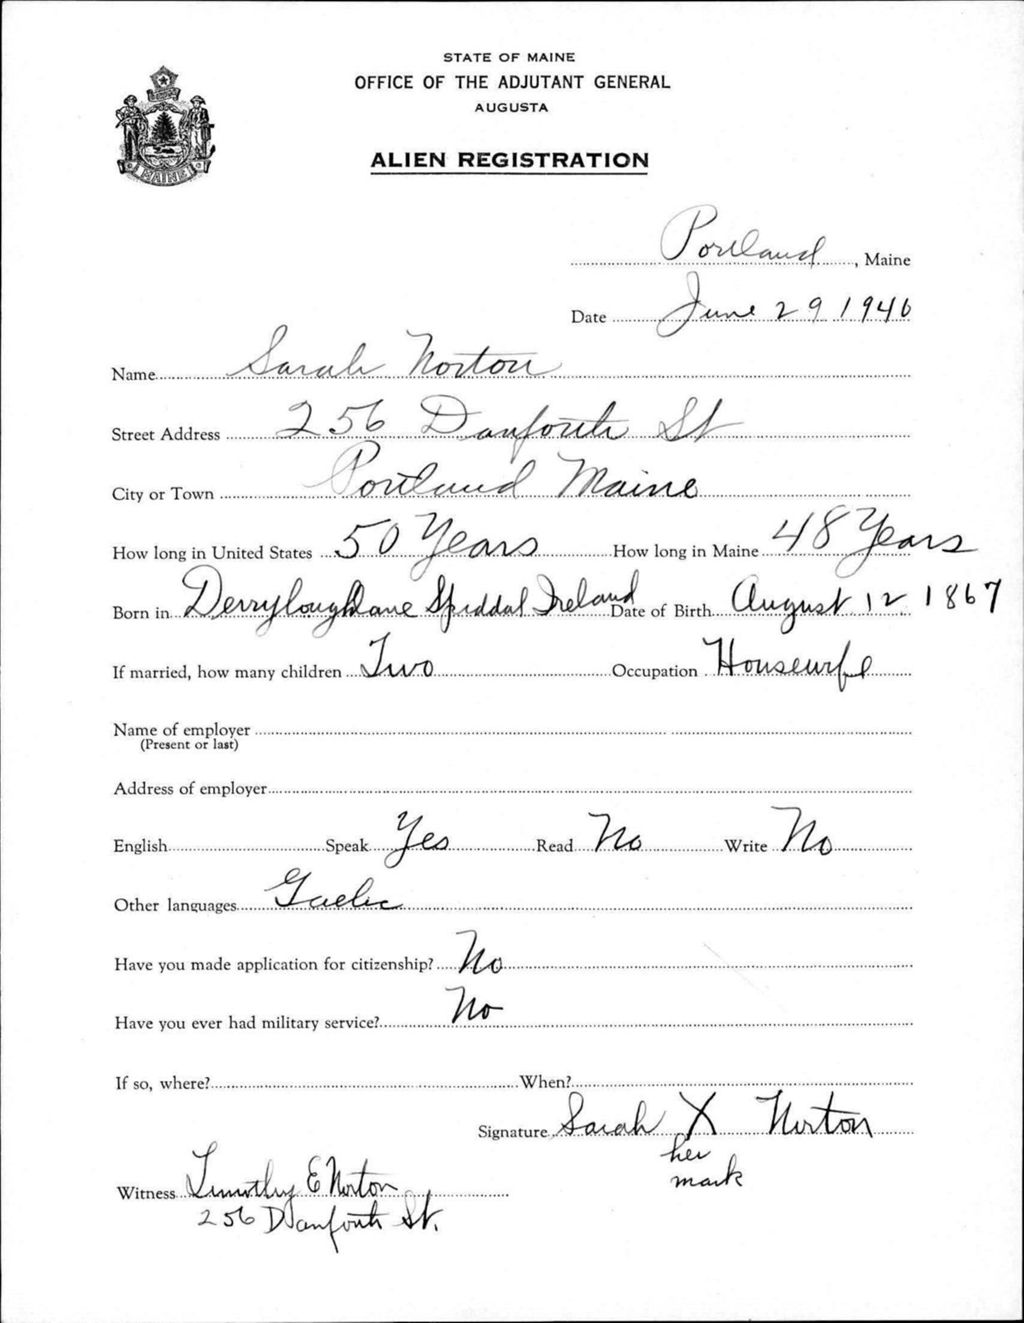 STATE OF MAINE
OFFICE OF THE ADJUTANT GENERAL
AUGUSTA
ALIEN REGISTRATION
MAINE
Portland, Maine
Date June 29 1940
Name Sarah Norton
Street Address 256 Danforth St
City or Town Portland Maine
How long in United States 50 Years How long in Maine 48 Years
Born in Derryloughlane Spiddal Ireland Date of Birth August 12 1867
If married, how many children Two Occupation Housewife
Name of employer
(Present or last)
Address of employer
English Speak Yes Read No Write No
Other languages Gaelic
Have you made application for citizenship? No
Have you ever had military service? No
If so, where? When?
Signature Sarah X Norton
her
mark
Witness Timothy E Norton
256 Danforth St.